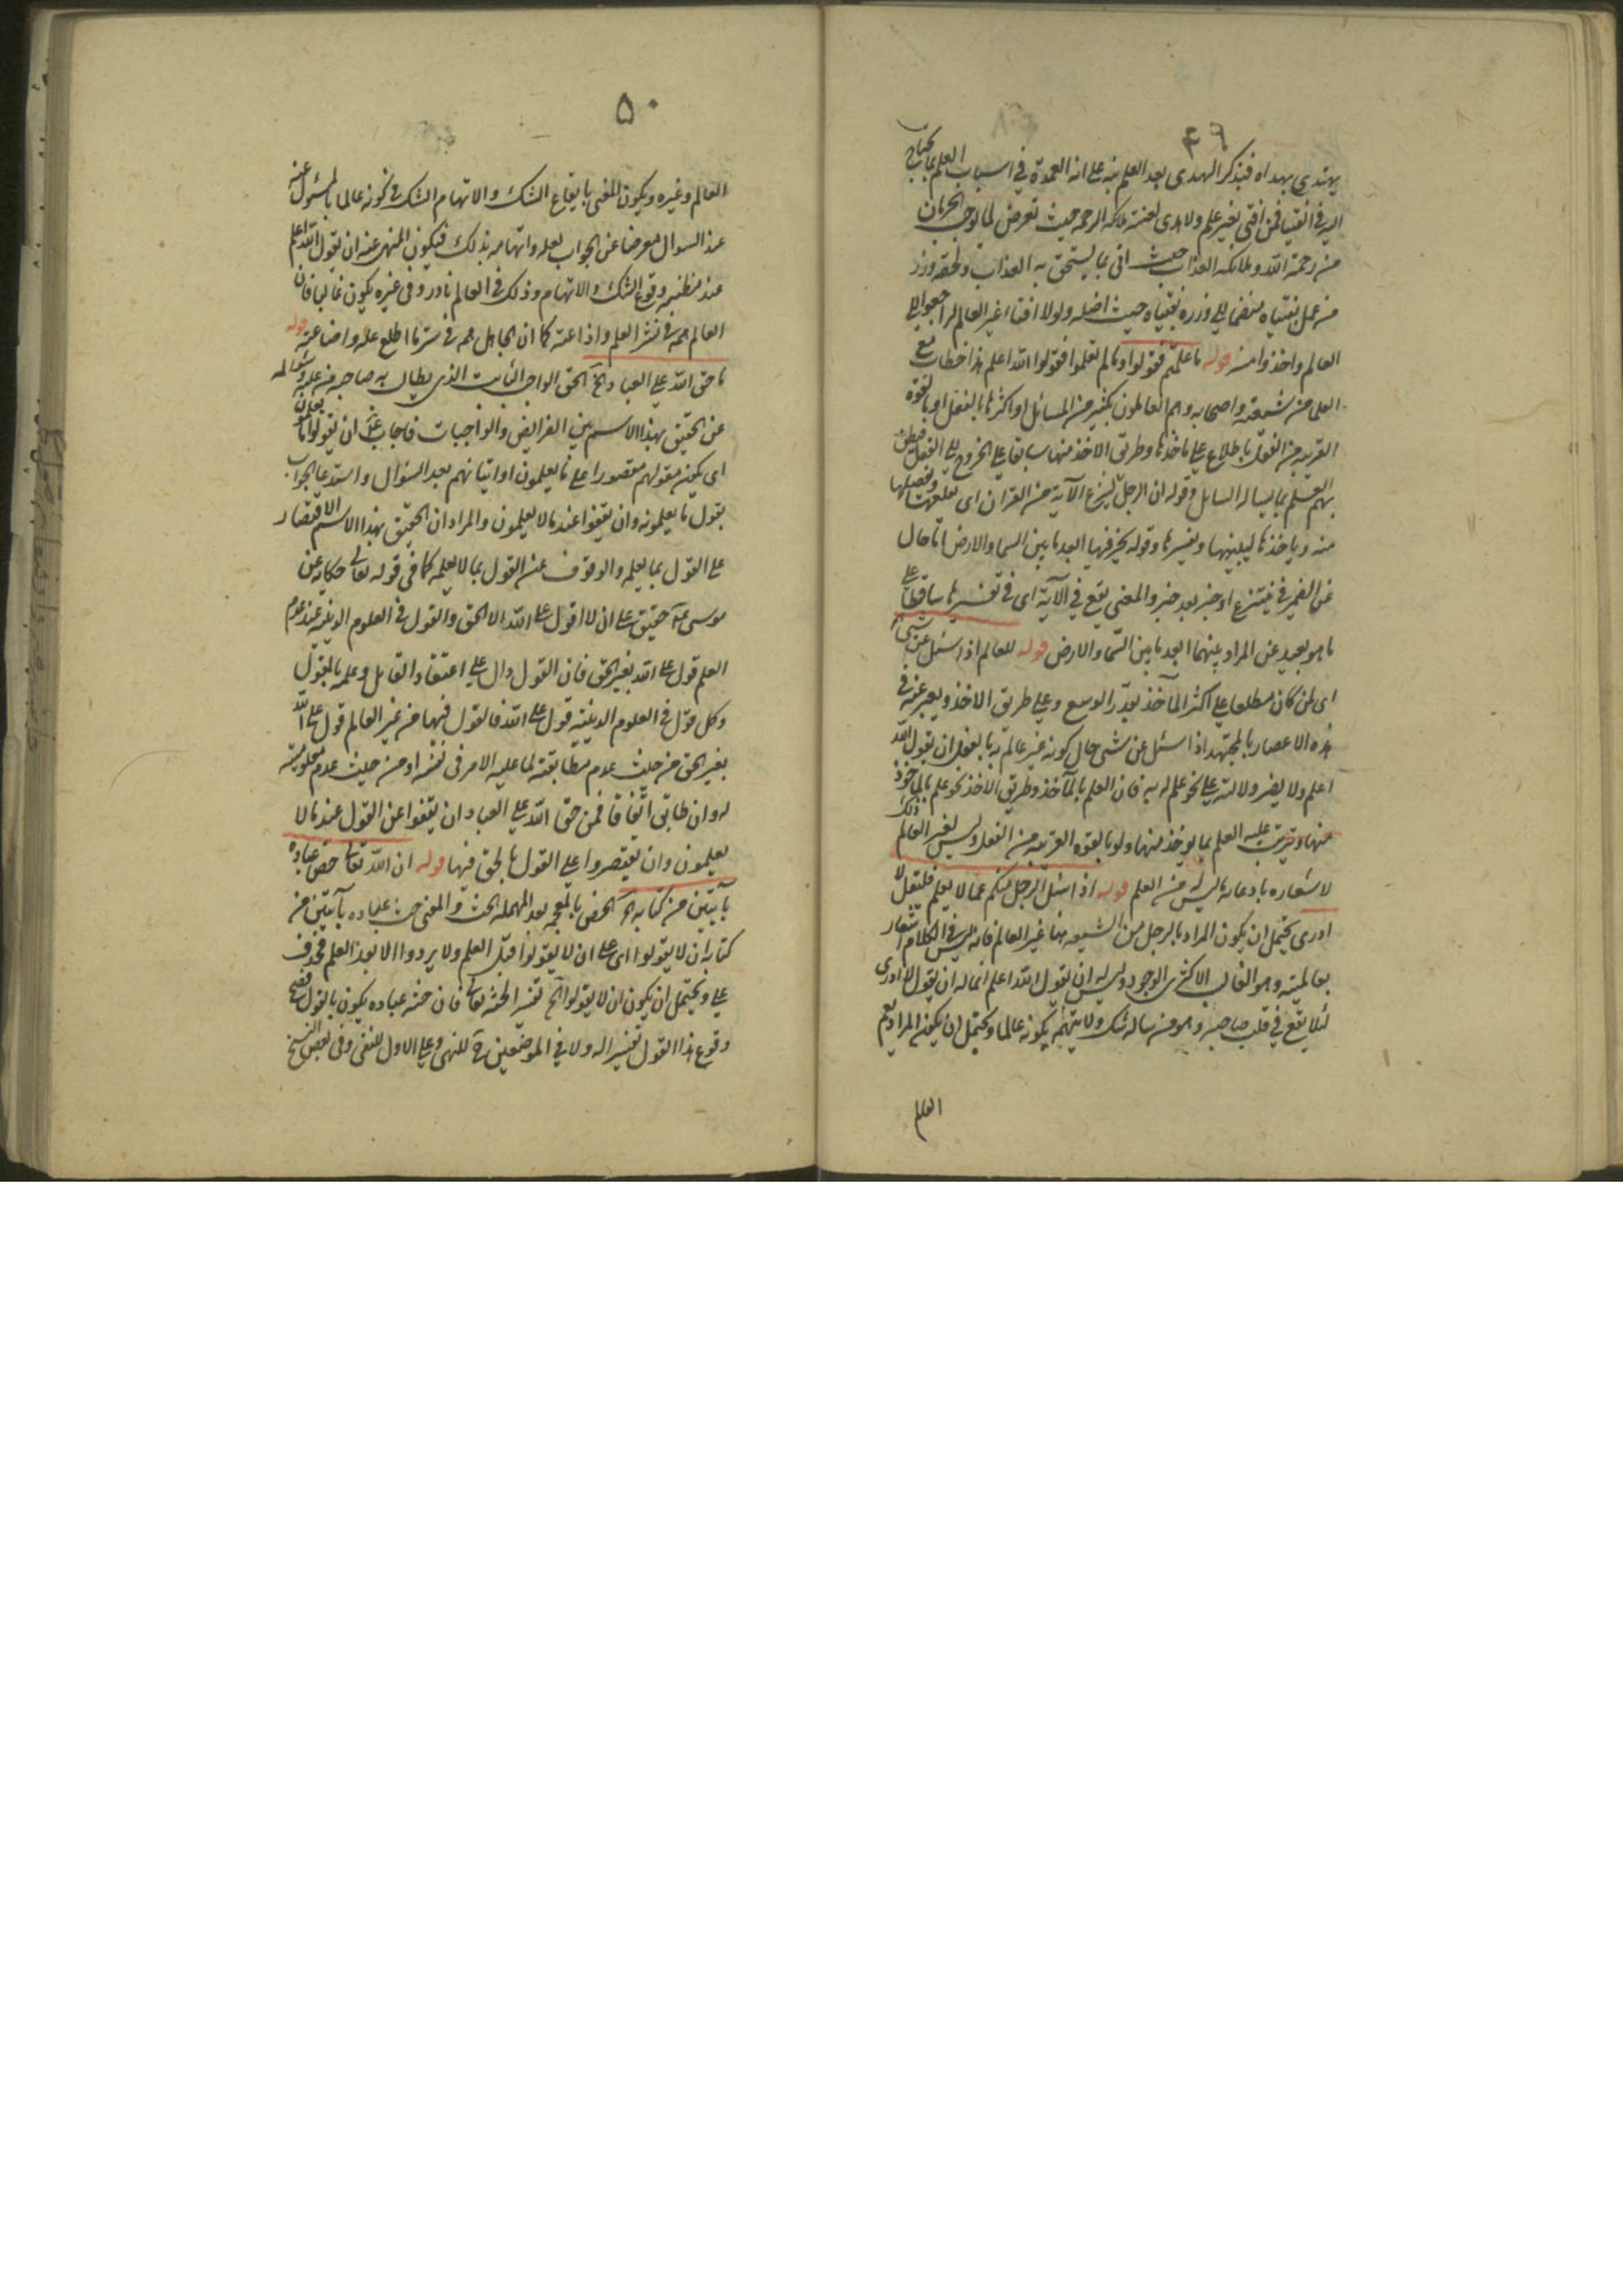 ٤٩
يهتدي بهداه فبذكر الهدى بعد العلم نبه على انه العمدة في اسباب العلم بما يحتاج
اليه في الفتيا فمن افتى بغير علم ولا هدى لعنته ملائكة الرحمة حيث تعرض لما يوجب الحرمان
من رحمة الله وملائكة العذاب حيث اتى بما يستحق به العذاب ولحقه وزر
من عمل بفتياه منضما الى وزره بفتياه حيث اضله ولولا افتاء غير العالم لراجعوا الى
العالم واخذوا منه قوله ما علمتم فقولوا وما لم تعلموا فقولوا الله اعلم هذا خطاب مع
العلماء من شيعته واصحابه وهم العالمون بكثير من المسائل او اكثرها بالفعل او بالقوة
القريبة من الفعل باطلاع على مأخذها وطريق الاخذ منها سابقا على الخروج الى الفعل
بهم العلم بما يسأله السائل وقوله ان الرجل لينزع الآية من القرآن اى
منه وياخذها ليبينها ويفسرها وقوله يخر فيها ابعد ما بين السماء والارض اما حال
عن الضمير في ينتزع او خبر بعد خبر والمعنى يقع في الآية اى في تفسيرها ساقطا على
ما هو بعيد عن المراد بينهما ابعد ما بين السماء والارض قوله للعالم اذا سئل عن شيء
اى لمن كان مطلعا على اكثر المآخذ بقدر الوسع وعلى طريق الاخذ ويعبر عنه في
هذه الاعصار بالمجتهد اذا سئل عن شيء حال كونه غير عالم به بالفعل ان يقول الله
اعلم ولا يضر ولالته على نحو علم له به فان العلم بالمآخذ وطريق الاخذ نحو علم بالماخوذ
منها وترتب عليه العلم بما يوخذ منها ولو بالقوة القريبة من الفعل وليس لغير العالم ذلك
لاشعاره بادعاء ما ليس له من العلم قوله اذا سئل الرجل منكم عما لا يعلم فليقل لا
ادرى يحتمل ان يكون المراد بالرجل من الشيعة هنا غير العالم فانه ليس في الكلام اشعار
بعالميته وهو الغالب الاكثرى الوجود وليس له ان يقول الله اعلم انما له ان يقول لا ادرى
لئلا يقع في قلب صاحبه وهو من سأله شك ولا يتهمه بكونه عالما ويحتمل ان يكون المراد يعم
العالم
٥٠
العالم وغيره ويكون المعنى بايقاع الشك والاتهام الشك في كونه عالما بالمسئول عنه
عند السوال معرضا عن الجواب لعلة واتهامه بذلك فيكون المنهى عنه ان يقول الله اعلم
عند مظنة وقوع الشك والاتهام وذلك في العالم نادر وفي غيره يكون غالبا فان
العالم همه في نشر العلم واذاعته كما ان الجاهل همه في ستر ما اطلع عليه واضاعته قوله
ما حق الله على العباد الخ الحق الواجب الثابت الذي يطالب به صاحبه من عليه وسئواله
عن الحقيق بهذا الاسم من الفرائض والواجبات فاجاب عنه ان يقولوا ما يعلمون
اى يكون مقولهم مقصورا على ما يعلمون او اتيانهم بعد السئوال واستدعاء الجواب
بقول ما يعلمونه وان يقفوا عند ما لا يعلمون والمراد ان الحقيق بهذا الاسم الاقتصار
على القول بما يعلم والوقوف عن القول بما لا يعلمه كما في قوله تعالى حكاية عن
موسى حقيق على ان لا اقول على الله الا الحق والقول في العلوم الدينية عند عدم
العلم قول على الله بغير الحق فان القول دال على اعتقاد القائل وعلمه بالمقول
وكل قول في العلوم الدينية قول على الله فالقول فيها من غير العالم قول على الله
بغير الحق من حيث عدم مطابقته لما عليه الامر في نفسه او من حيث عدم معلوميته
له وان طابق اتفاقا فمن حق الله على العباد ان يقفوا عن القول عند ما لا
يعلمون وان يقتصروا على القول بالحق فيها قوله ان الله تعالى خص عباده
بآيتين من كتابه الخ الحض بالمعجمه بعد المهملة الحث والمعنى حث عباده بآيتين من
كتابه ان لا يقولوا اى على ان لا يقولوا قبل العلم ولا يردوا الا بعد العلم فحذف
على ويحتمل ان يكون ان لا يقولوا الخ تفسير الحثه تعالى فان حثه عباده يكون بالقول فصح
وقوع هذا القول تفسيرا له ولا في الموضعين ح للنهى وعلى الاول للنفى وفى بعض النسخ